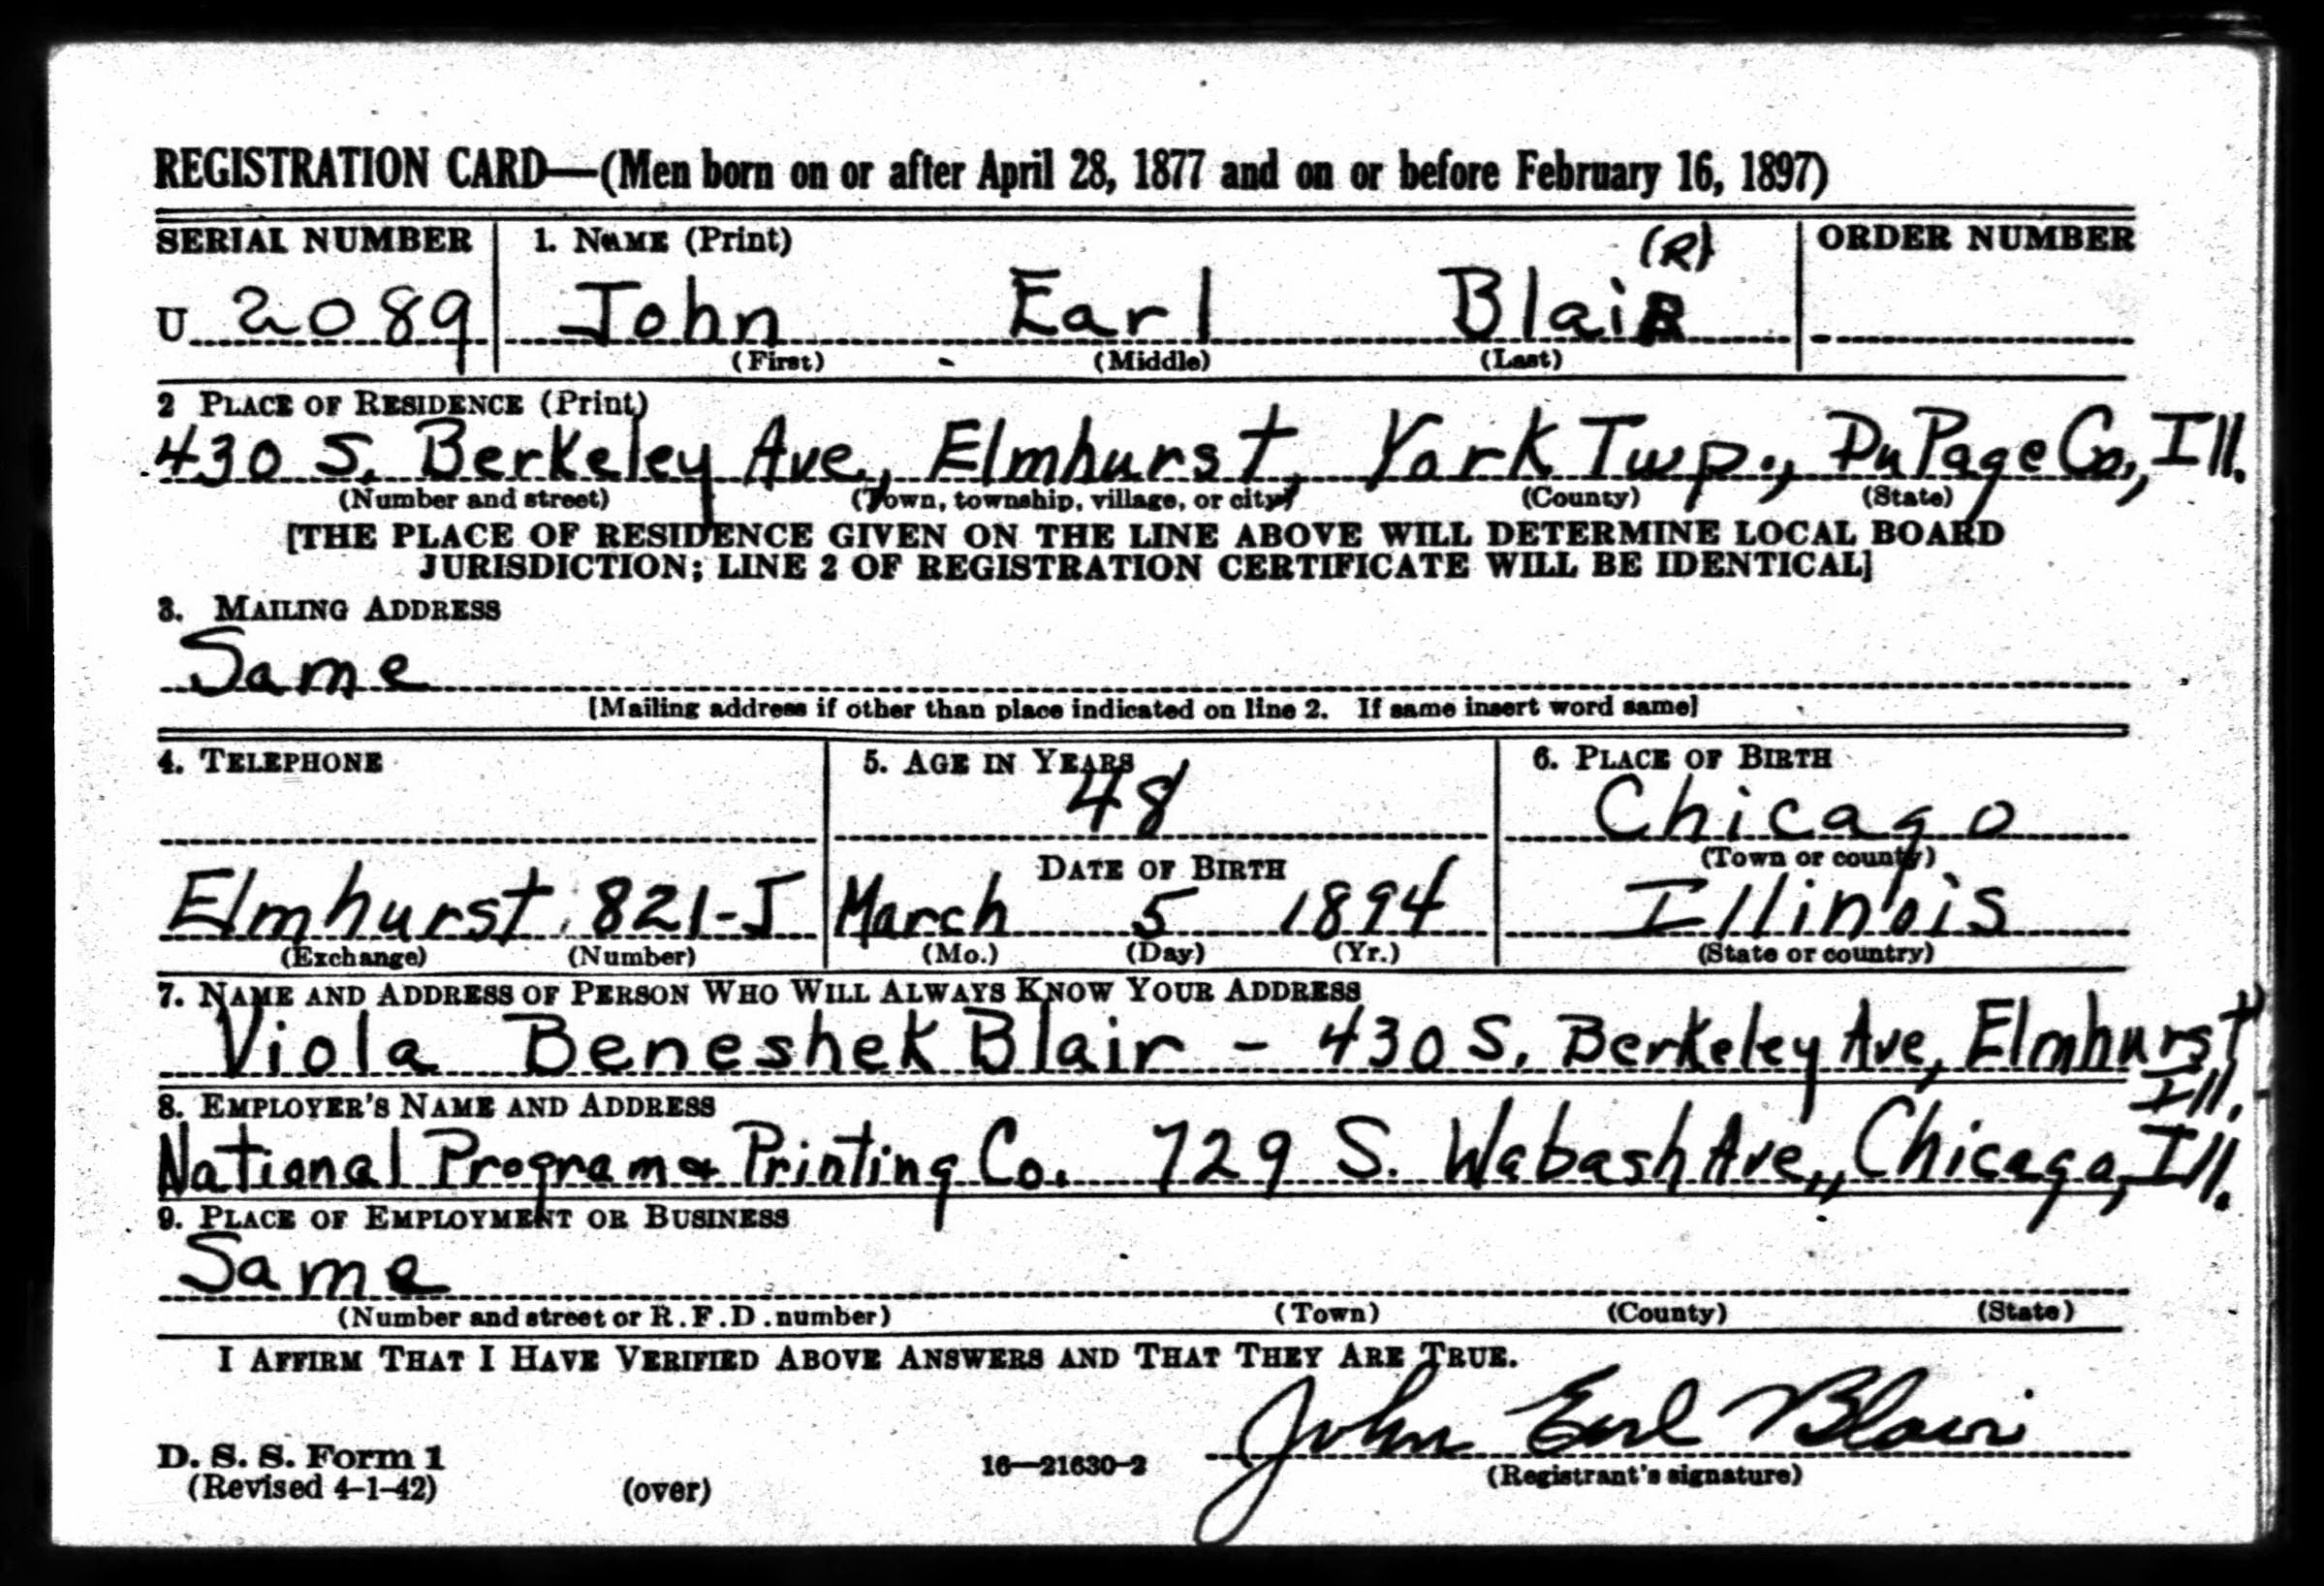 REGISTRATION CARD—(Men born on or after April 28, 1877 and on or before February 16, 1897)
SERIAL NUMBER 1. NAME (Print) (R) ORDER NUMBER
U 2089 John Earl Blair
(First) (Middle) (Last)
2 PLACE OF RESIDENCE (Print)
430 S. Berkeley Ave., Elmhurst, York Twp., DuPage Co., Ill.
(Number and street) (Town, township, village, or city) (County) (State)
[THE PLACE OF RESIDENCE GIVEN ON THE LINE ABOVE WILL DETERMINE LOCAL BOARD
JURISDICTION; LINE 2 OF REGISTRATION CERTIFICATE WILL BE IDENTICAL]
3. MAILING ADDRESS
Same
[Mailing address if other than place indicated on line 2. If same insert word same]
4. TELEPHONE 5. AGE IN YEARS 6. PLACE OF BIRTH
48 Chicago
DATE OF BIRTH (Town or county)
Elmhurst 821-J March 5 1894 Illinois
(Exchange) (Number) (Mo.) (Day) (Yr.) (State or country)
7. NAME AND ADDRESS OF PERSON WHO WILL ALWAYS KNOW YOUR ADDRESS
Viola Beneshek Blair - 430 S. Berkeley Ave, Elmhurst
Ill.
8. EMPLOYER'S NAME AND ADDRESS
National Program & Printing Co. 729 S. Wabash Ave., Chicago, Ill.
9. PLACE OF EMPLOYMENT OR BUSINESS
Same
(Number and street or R.F.D. number) (Town) (County) (State)
I AFFIRM THAT I HAVE VERIFIED ABOVE ANSWERS AND THAT THEY ARE TRUE.
John Earl Blair
D. S. S. Form 1 16—21630-2 (Registrant's signature)
(Revised 4-1-42) (over)